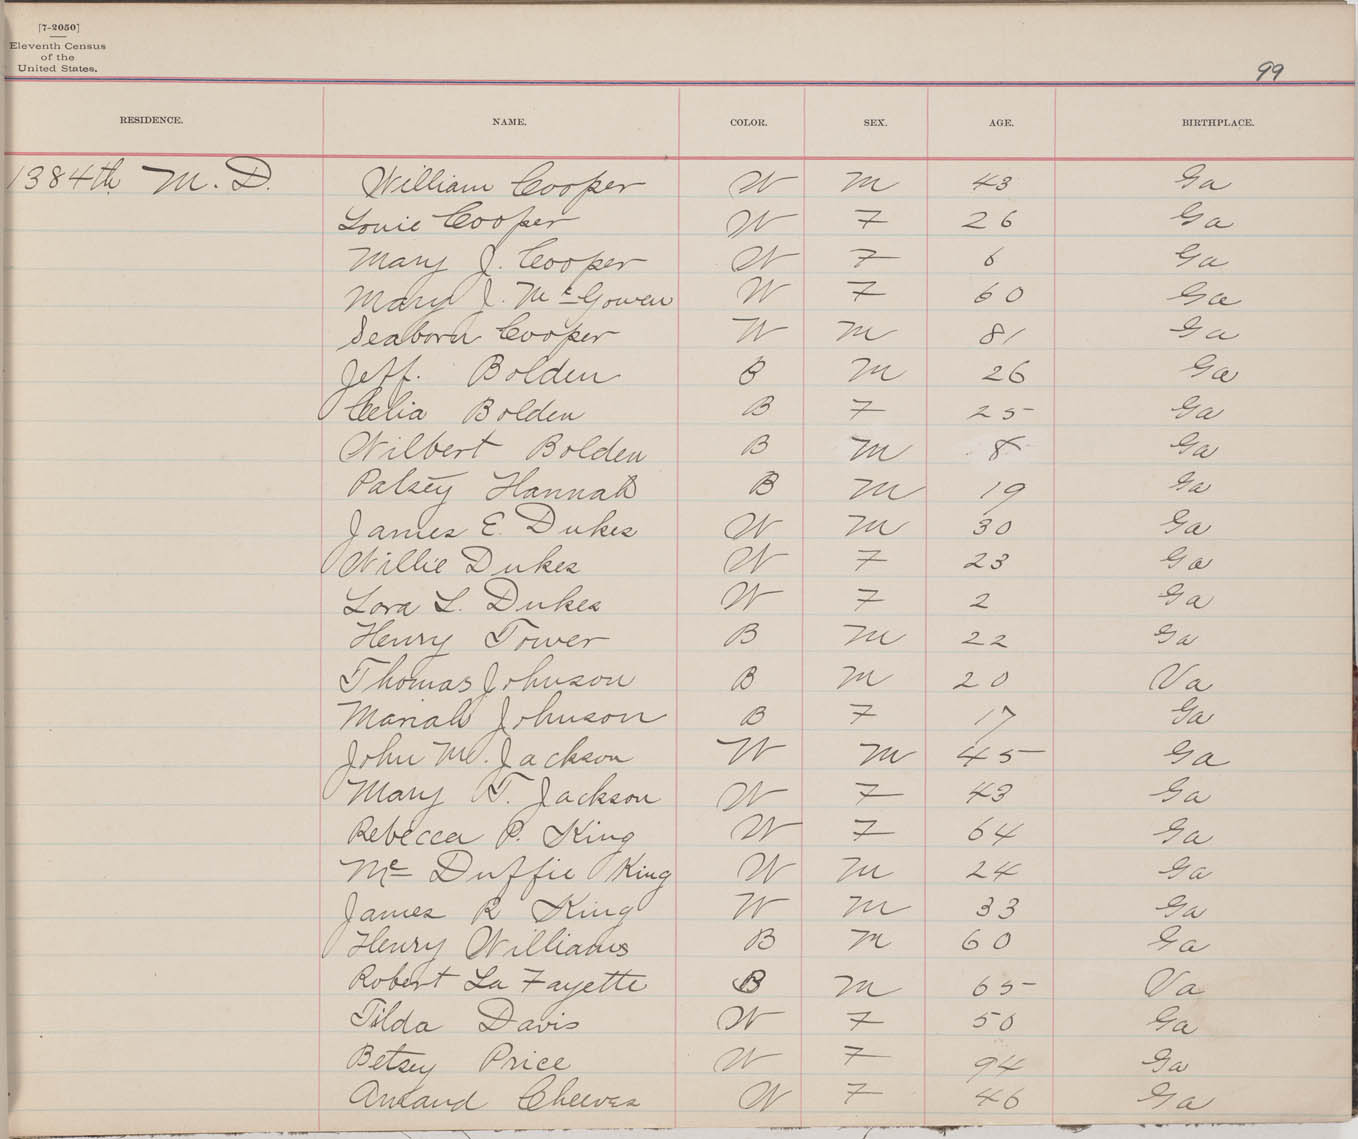 [7-2050]
Eleventh Census
of the
United States.
99
RESIDENCE. NAME. COLOR. SEX. AGE. BIRTHPLACE.
1384th M. D. William Cooper W M 43 Ga
Louie Cooper W F 26 Ga
Mary J. Cooper W F 6 Ga
Mary J. McGowen W F 60 Ga
Seaborn Cooper W M 81 Ga
Jeff. Bolden B M 26 Ga
Celia Bolden B F 25 Ga
Wilbert Bolden B M 8 Ga
Patsey Hannah B M 19 Ga
James E. Dukes W M 30 Ga
Willie Dukes W F 23 Ga
Lora L. Dukes W F 2 Ga
Henry Tower B M 22 Ga
Thomas Johnson B M 20 Va
Mariah Johnson B F 17 Ga
John M. Jackson W M 45 Ga
Mary T. Jackson W F 43 Ga
Rebecca P. King W F 64 Ga
Mc Duffie King W M 24 Ga
James R King W M 33 Ga
Henry Williams B M 60 Ga
Robert La Fayette B M 65 Va
Tilda Davis W F 50 Ga
Betsey Price W F 94 Ga
Cheeves W F 46 Ga